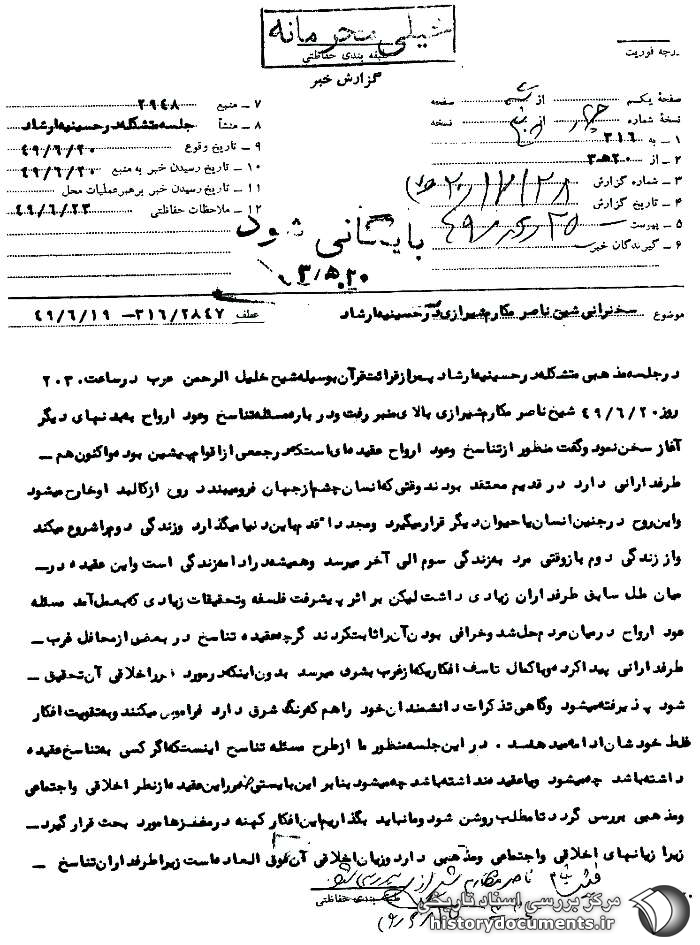 خیلی محرمانه
طبقه بندی حفاظتی
گزارش خبر
درجه فوریت
صفحهٔ یکم از صفحه
نسخهٔ شماره از نسخه
۱ – به ۳۱۶
۲ – از ۲۰ه۳
۳ – شماره گزارش
۴ – تاریخ گزارش
۵ – پیوست
۶ – گیرندگان خبر
۷ – منبع ۲۹۴۸
۸ – منشأ جلسه متشکله در حسینیه ارشاد
۹ – تاریخ وقوع ۴۹/۶/۲۰
۱۰ – تاریخ رسیدن خبر به منبع ۴۹/۶/۲۰
۱۱ – تاریخ رسیدن خبر برهبر عملیات محل
۱۲ – ملاحظات حفاظتی ۴۹/۶/۲۳
بایگانی شود
موضوع سخنرانی شیخ ناصر مکارم شیرازی در حسینیه ارشاد عطف ۳۱۶/۲۸۴۷ – ۴۹/۶/۱۹
در جلسه مذهبی متشکله در حسینیه ارشاد پس از قرائت قرآن بوسیله شیخ خلیل الرحمن عرب در ساعت ۲۰۳۰
روز ۴۹/۶/۲۰ شیخ ناصر مکارم شیرازی بالای منبر رفت و در باره مسئله تناسخ وعود ارواح به بدنهای دیگر
آغاز سخن نمود و گفت منظور از تناسخ وعود ارواح عقیده ای است که در جمعی از اقوام پیشین بوده و اکنون هم –
طرفدارانی دارد در قدیم معتقد بودند وقتی که انسان چشم از جهان فرو میبندد روح از کالبد او خارج میشود
و این روح در جنین انسان یا حیوان دیگر قرار میگیرد ومجددا قدم باین دنیا میگذارد وزندگی دوم را شروع میکند
و از زندگی دوم باز وقتی مرد به زندگی سوم الی آخر میرسد وهمیشه در ادامه زندگی است و این عقیده در –
میان ملل سابق طرفداران زیادی داشت لیکن بر اثر پیشرفت فلسفه وتحقیقات زیادی که بعمل آمد مسئله
عود ارواح در میان مردم حل شد وخرافی بودن آن را ثابت کردند گرچه عقیده تناسخ در بعضی از محافل غرب –
طرفدارانی پیدا کرده و با کمال تاسف افکاریکه از غرب بشرق میرسد بدون اینکه در مورد ضرر اخلاقی آن تحقیق –
شود پذیرفته میشود وگاهی تذکرات دانشمندان خود را هم که رنگ شرق دارد فراموش میکنند و به تقویت افکار
غلط خودشان ادامه میدهند . در این جلسه منظور ما از طرح مسئله تناسخ اینست که اگر کسی به تناسخ عقیده
داشته باشد چه میشود ویا عقیده نداشته باشد چه میشود بنابر این بایستی ضرر این عقیده از نظر اخلاقی واجتماعی
ومذهبی بررسی گردد تا مطلب روشن شود وما نباید بگذاریم این افکار کهنه در مغزها مورد بحث قرار گیرد –
زیرا زیانهای اخلاقی واجتماعی ومذهبی دارد وزیان اخلاقی آن فوق العاده است زیرا طرفداران تناسخ –
طبقه بندی حفاظتی
مرکز بررسی اسناد تاریخی
historydocuments.ir